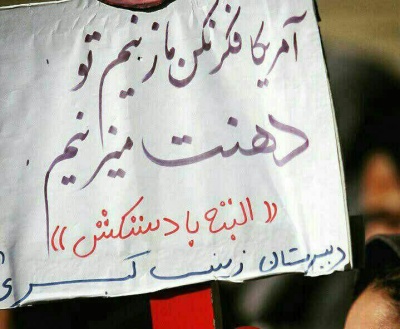 آمریکا فکر نکن ما زنیم تو
دهنت میزنیم
« البته با دستکش »
دبیرستان زینب کبری